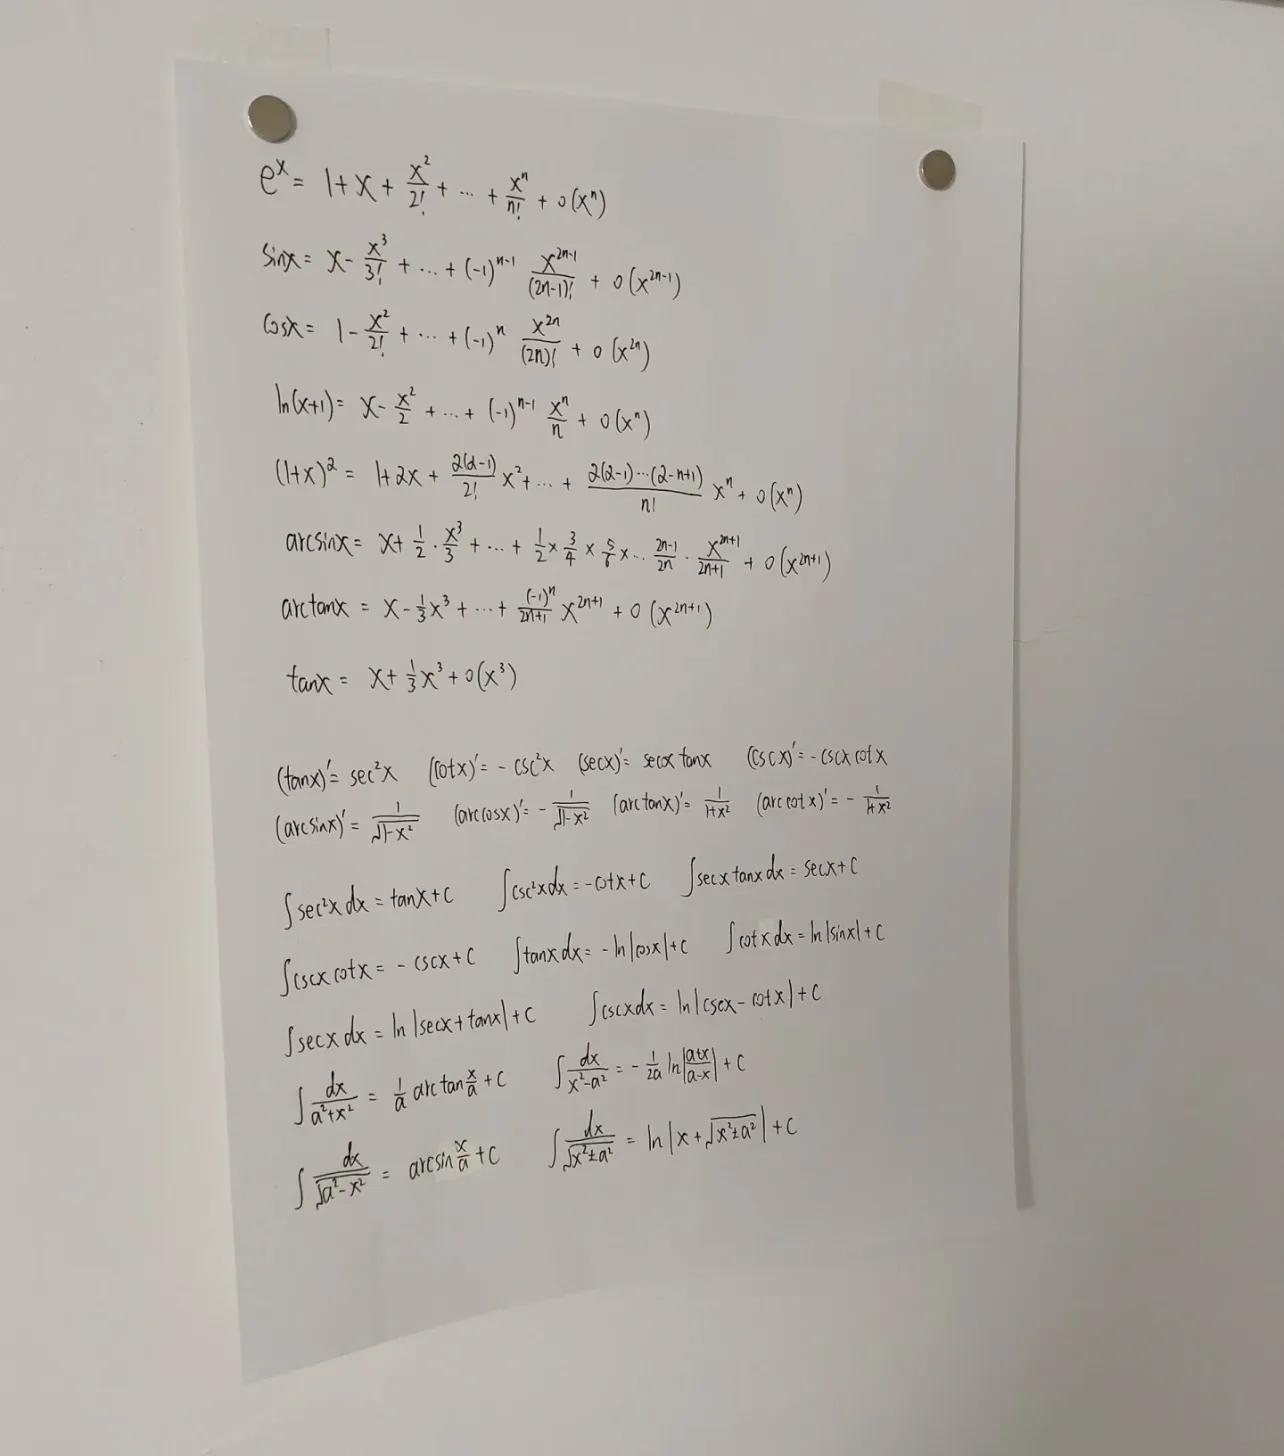 e^x = 1+x+ x²/2! + ... + x^n/n! + o(x^n)
sinx = x - x³/3! + ... + (-1)^(n-1) x^(2n-1)/(2n-1)! + o(x^(2n-1))
cosx = 1 - x²/2! + ... + (-1)^n x^(2n)/(2n)! + o(x^(2n))
ln(x+1) = x - x²/2 + ... + (-1)^(n-1) x^n/n + o(x^n)
(1+x)^2 = 1+2x + 2(2-1)/2! x² + ... + 2(2-1)...(2-n+1)/n! x^n + o(x^n)
arcsinx = x + 1/2 · x³/3 + ... + 1/2 × 3/4 × 5/6 × ... (2n-1)/2n · x^(2n+1)/(2n+1) + o(x^(2n+1))
arctanx = x - 1/3 x³ + ... + (-1)^n/(2n+1) x^(2n+1) + o(x^(2n+1))
tanx = x + 1/3 x³ + o(x³)
(tanx)' = sec²x (cotx)' = - csc²x (secx)' = secx tanx (cscx)' = - cscx cotx
(arcsinx)' = 1/√(1-x²) (arccosx)' = - 1/√(1-x²) (arctanx)' = 1/(1+x²) (arccotx)' = - 1/(1+x²)
∫sec²x dx = tanx+C ∫csc²x dx = -cotx+C ∫secx tanx dx = secx+C
∫cscx cotx = - cscx+C ∫tanx dx = - ln|cosx|+C ∫cotx dx = ln|sinx|+C
∫secx dx = ln|secx+tanx|+C ∫cscx dx = ln|cscx-cotx|+C
∫dx/(a²+x²) = 1/a arctan x/a + C ∫dx/(x²-a²) = - 1/2a ln|(a+x)/(a-x)| + C
∫dx/√(a²-x²) = arcsin x/a + C ∫dx/√(x²±a²) = ln|x+√(x²±a²)|+C